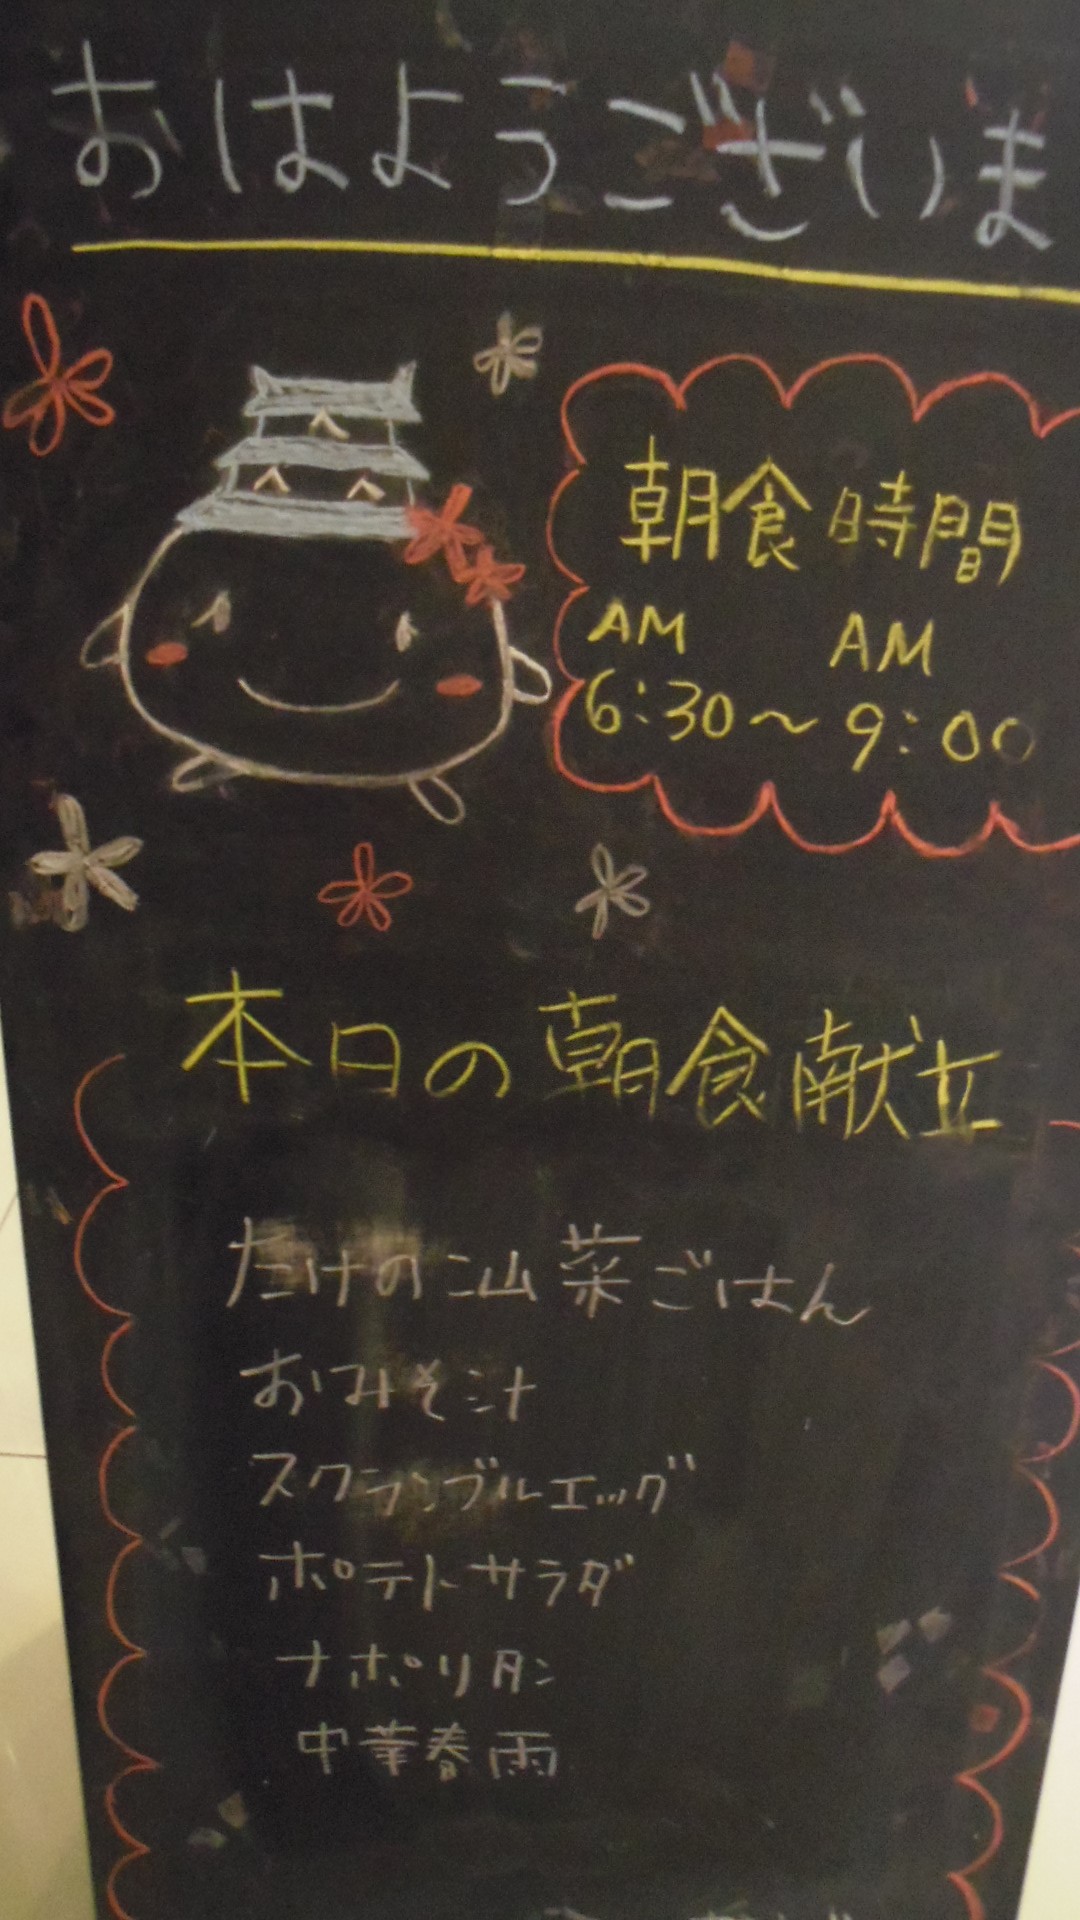 おはようございま
朝食時間
AM AM
6:30〜9:00
本日の朝食献立
たけのこ山菜ごはん
おみそ汁
スクランブルエッグ
ポテトサラダ
ナポリタン
中華春雨